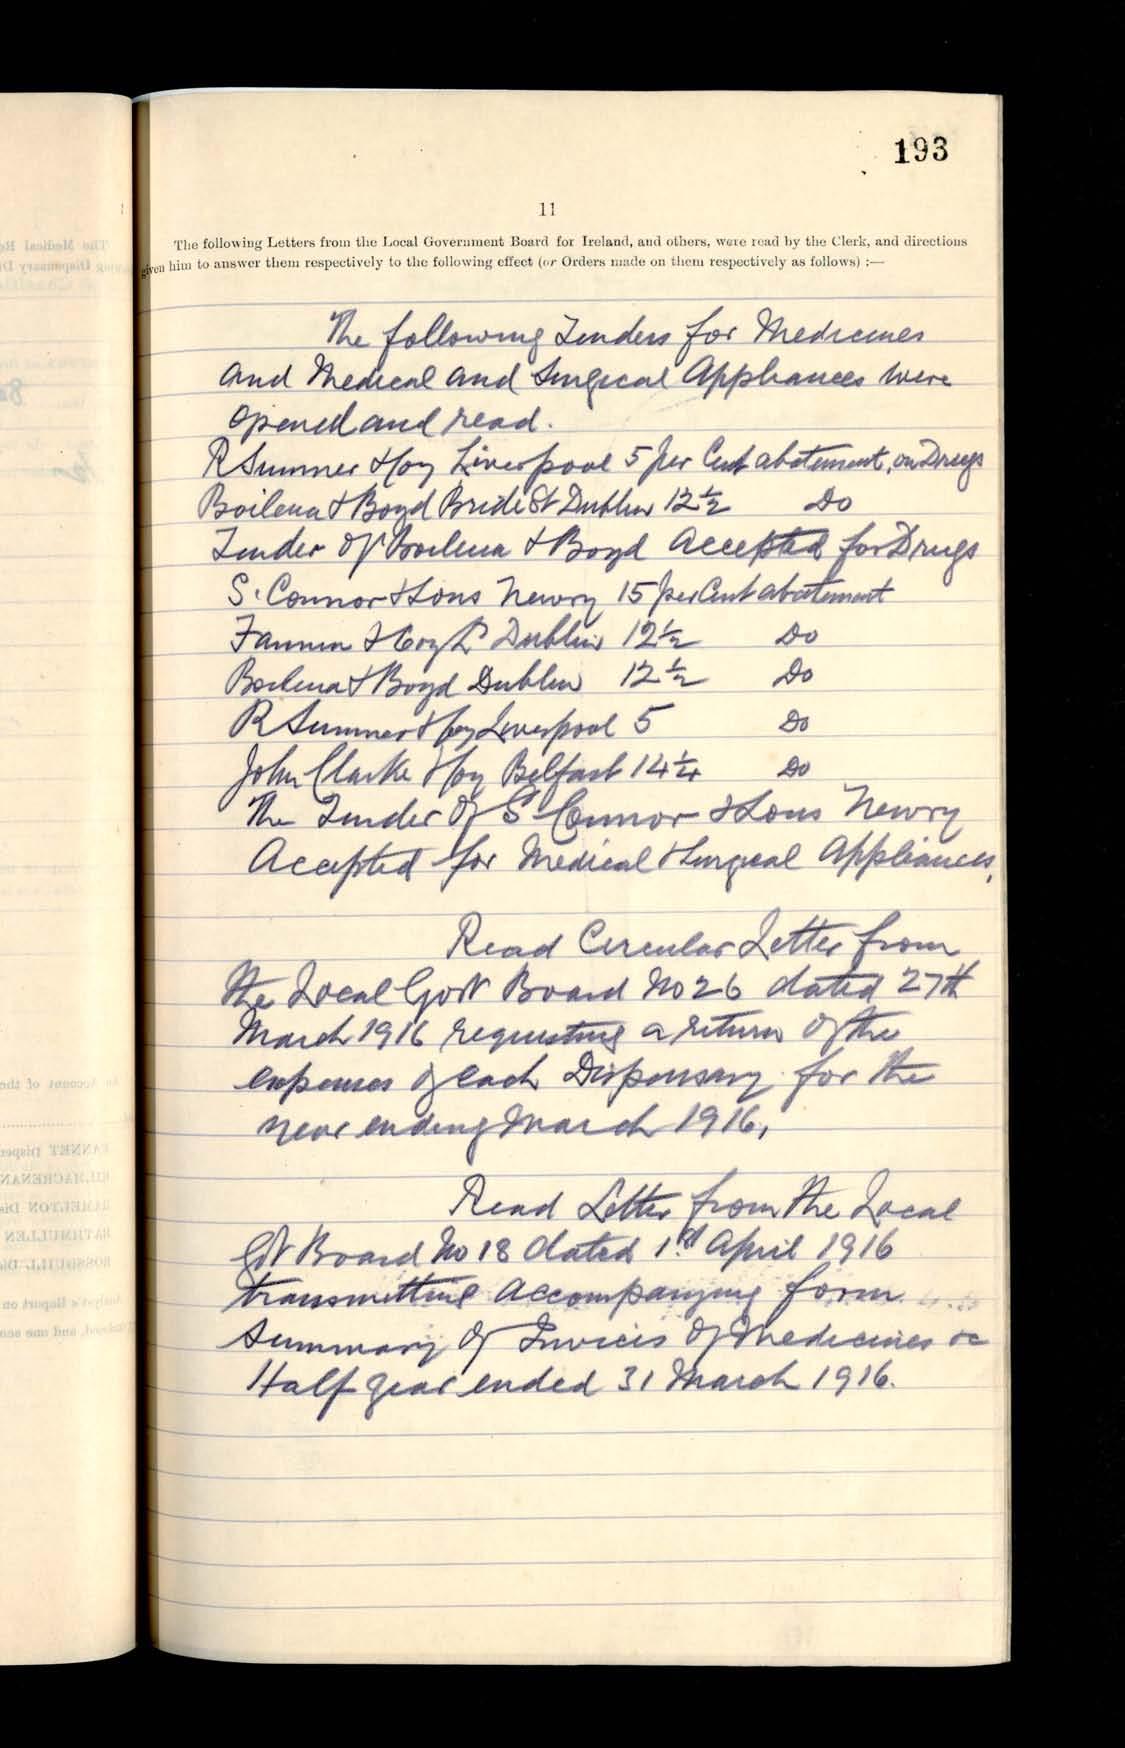 193
11
The following Letters from the Local Government Board for Ireland, and others, were read by the Clerk, and directions
given him to answer them respectively to the following effect (or Orders made on them respectively as follows) :—
The following Tenders for Medicines
and Medical and Surgical Appliances were
opened and read.
R Sumner & Coy Liverpool 5 per Cent abatement, on Drugs
Boilena & Boyd Bride St Dublin 12½ Do
Tender of Boilena & Boyd Accepted for Drugs
S. Connor & Sons Newry 15 per Cent abatement
Fannin & Coy Ld Dublin 12½ Do
Boilena & Boyd Dublin 12½ Do
R Sumner & Coy Liverpool 5 Do
John Clarke & Coy Belfast 14¼ Do
The Tender of S Connor & Sons Newry
Accepted for Medical & Surgical Appliances.
Read Circular Letter from
the Local Govt Board No 26 dated 27th
March 1916 requesting a return of the
expenses of each Dispensary for the
year ending March 1916,
Read Letter from the Local
Gvt Board No 18 dated 1st April 1916
transmitting accompanying form
Summary of Invicis of Medicines &c
Half year ended 31 March 1916.